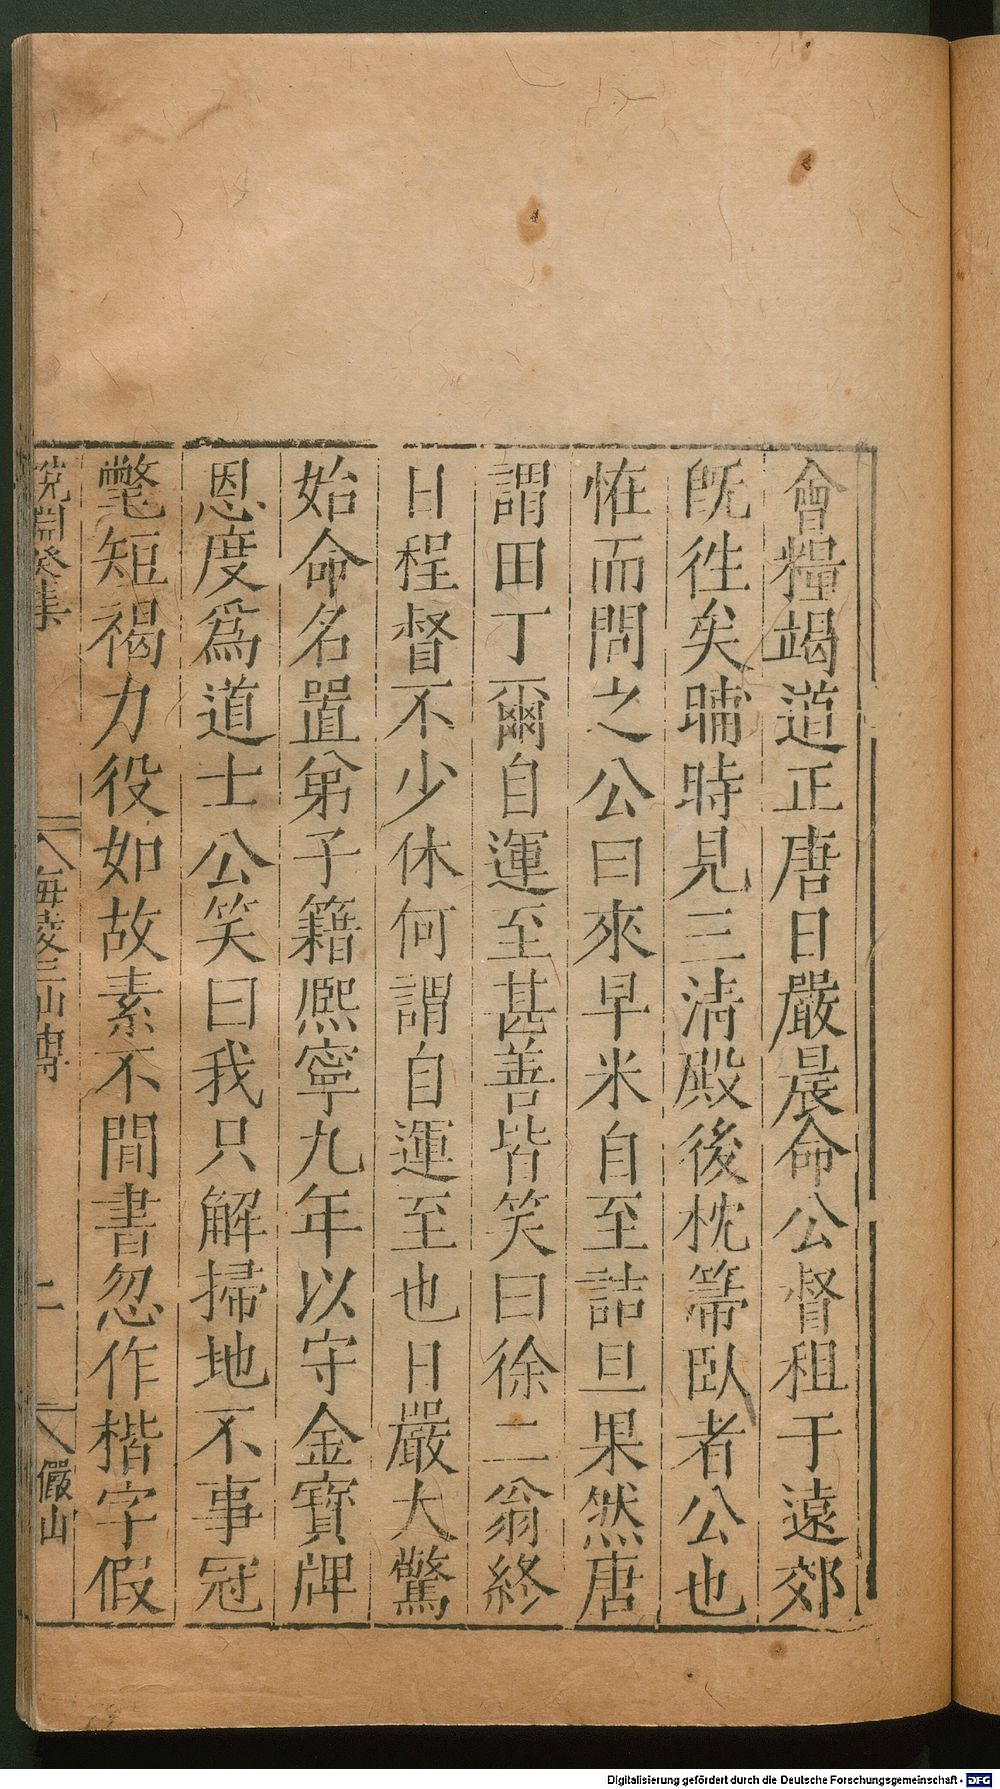 會糧竭道正唐日嚴晨命公督租于遠郊
旣徃矣晡時見三清殿後枕箒臥者公也
恠而問之公曰來早米自至詰旦果然唐
謂田丁爾自運至甚善皆笑曰徐二翁終
日程督不少休何謂自運至也日嚴大驚
始命名置弟子籍熈寧九年以守金寶牌
恩度爲道士公笑曰我只解掃地不事冠
氅短褐力役如故素不閒書忽作楷字假
說淵癸集
海陵三仙傳
二
儼山
Digitalisierung gefördert durch die Deutsche Forschungsgemeinschaft - DFG